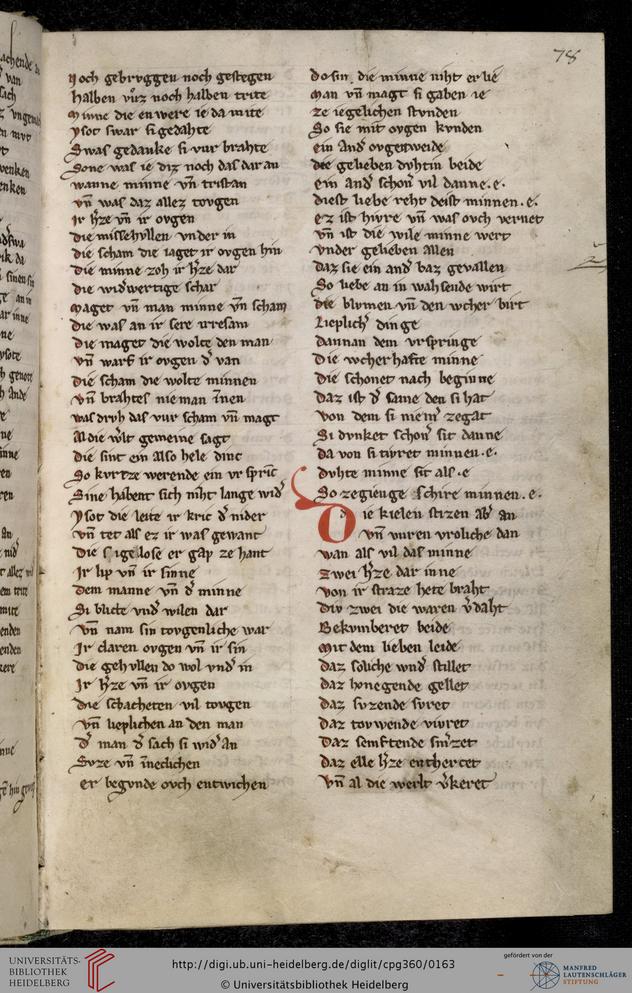 78
Noch gebrvggen noch gestegen
Halben vůz noch halben trite
Minne die en were ie da mite
Ysot swar si gedahte
Swas gedanke si vur brahte
Sone was ie diz noch das dar an
wanne minne vn̄ tristan
vn̄ was daz allez tovgen
Ir hˀze vn̄ ir ovgen
die missehyllen vnder in
die scham die iaget ir ovgen hin
die minne zoh ir hˀze dar
die widˀwertige schar
maget vn̄ man minne vn̄ scham
die was an ir sere
die maget die wolte den man
vn̄ warf ir ovgen dˀ van
die scham die wolte minnen
vn̄ brahtes nieman īnen
was dvh das vur scham vn̄ magt
Al die wˀlt gemeine sagt
die sint ein also hele dinc
So kvrtze werende ein vr sprīc
Sine habent sich niht lange widˀ
Ysot die leite ir kric dˀ nider
vn̄ tet als ez ir was gewant
Die sigelose er gap ze hant
Ir lip vn̄ ir sinne
Dem manne vn̄ dˀ minne
Si blicte vndˀ wilen dar
vn̄ nam sin tovgenliche war
Ir claren ovgen vn̄ ir sin
die gehyllen do wol vndˀ in
Ir hˀze vn̄ ir ovgen
die schacheten vil tovgen
vn̄ lieplichen an den man
dˀ man dˀ sach si widˀ an
Svze vn̄ īneclichen
er begvnde ovch entwichen
do sin die minne niht er lie
man vn̄ magt si gaben ie
ze iegelichen stvnden
So sie mit ovgen kvnden
ein andˀ ovgenweide
die gelieben dvhtin beide
ein andˀ schonˀ vil danne .e.
diest liebe reht deist minnen .e.
ez ist hivre vn̄ was ovch vernet
vn̄ ist die wile minne wert
vnder gelieben Allen
daz sie ein andˀ baz gevallen
So liebe an in wahsende wirt
die blvmen vn̄ den wcher birt
Lieplichˀ dinge
dannan dem vrspringe
Die wcherhafte minne
die schonet nach beginne
daz ist dˀ same den si hat
von dem si niemˀ zegat
Si dvnket schonˀ sit danne
da von si tivret minnen .e.
dvhte minne sit als .e
So zegienge schire minnen .e.
Die kielen stizen abˀ an
vn̄ vuren vroliche dan
wan als vil das minne
zwei hˀze dar inne
von ir straze hete braht
div zwei die waren vˀdaht
Bekvmberet beide
mit dem lieben leide
daz soliche wndˀ stillet
daz honegende gellet
daz svzende svret
daz tovwende vivret
daz semftende smˀzet
daz elle hˀze enthercet
vn̄ al die werlt vˀkeret
UNIVERSITÄTS-
BIBLIOTHEK
HEIDELBERG
http://digi.ub.uni-heidelberg.de/diglit/cpg360/0163
© Universitätsbibliothek Heidelberg
gefördert von der
MANFRED
LAUTENSCHLÄGER
STIFTUNG